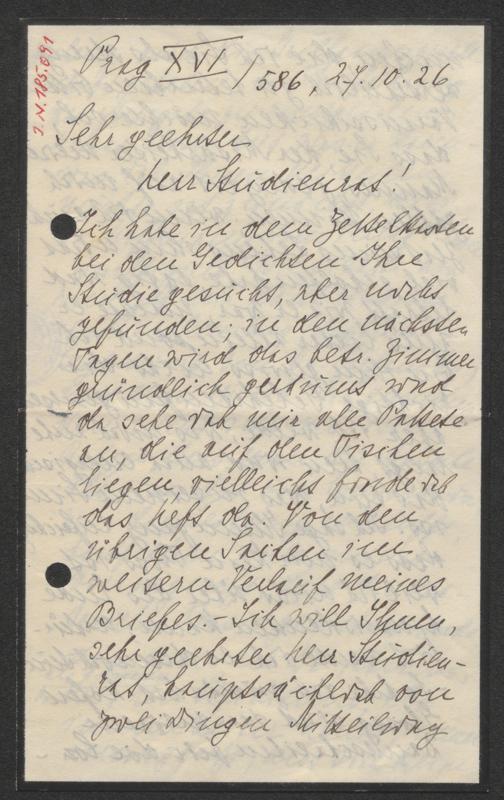 J.N. 185.091
Prag XVI / 586, 27.10.26
Sehr geehrter
Herr Studienrat!
Ich habe in dem Zettelkasten
bei den Gedichten Ihre
Studie gesucht, aber nichts
gefunden; in den nächsten
Tagen wird das betr. Zimmer
gründlich geräumt und
da sehe ich mir alle Pakete
an, die auf den Tischen
liegen, vielleicht finde ich
das Heft da. Von den
übrigen Saiten im
weitern Verlauf meines
Briefes. - Ich will Ihnen,
sehr geehrter Herr Studien-
rat, hauptsächlich von
zwei Dingen Mitteilung